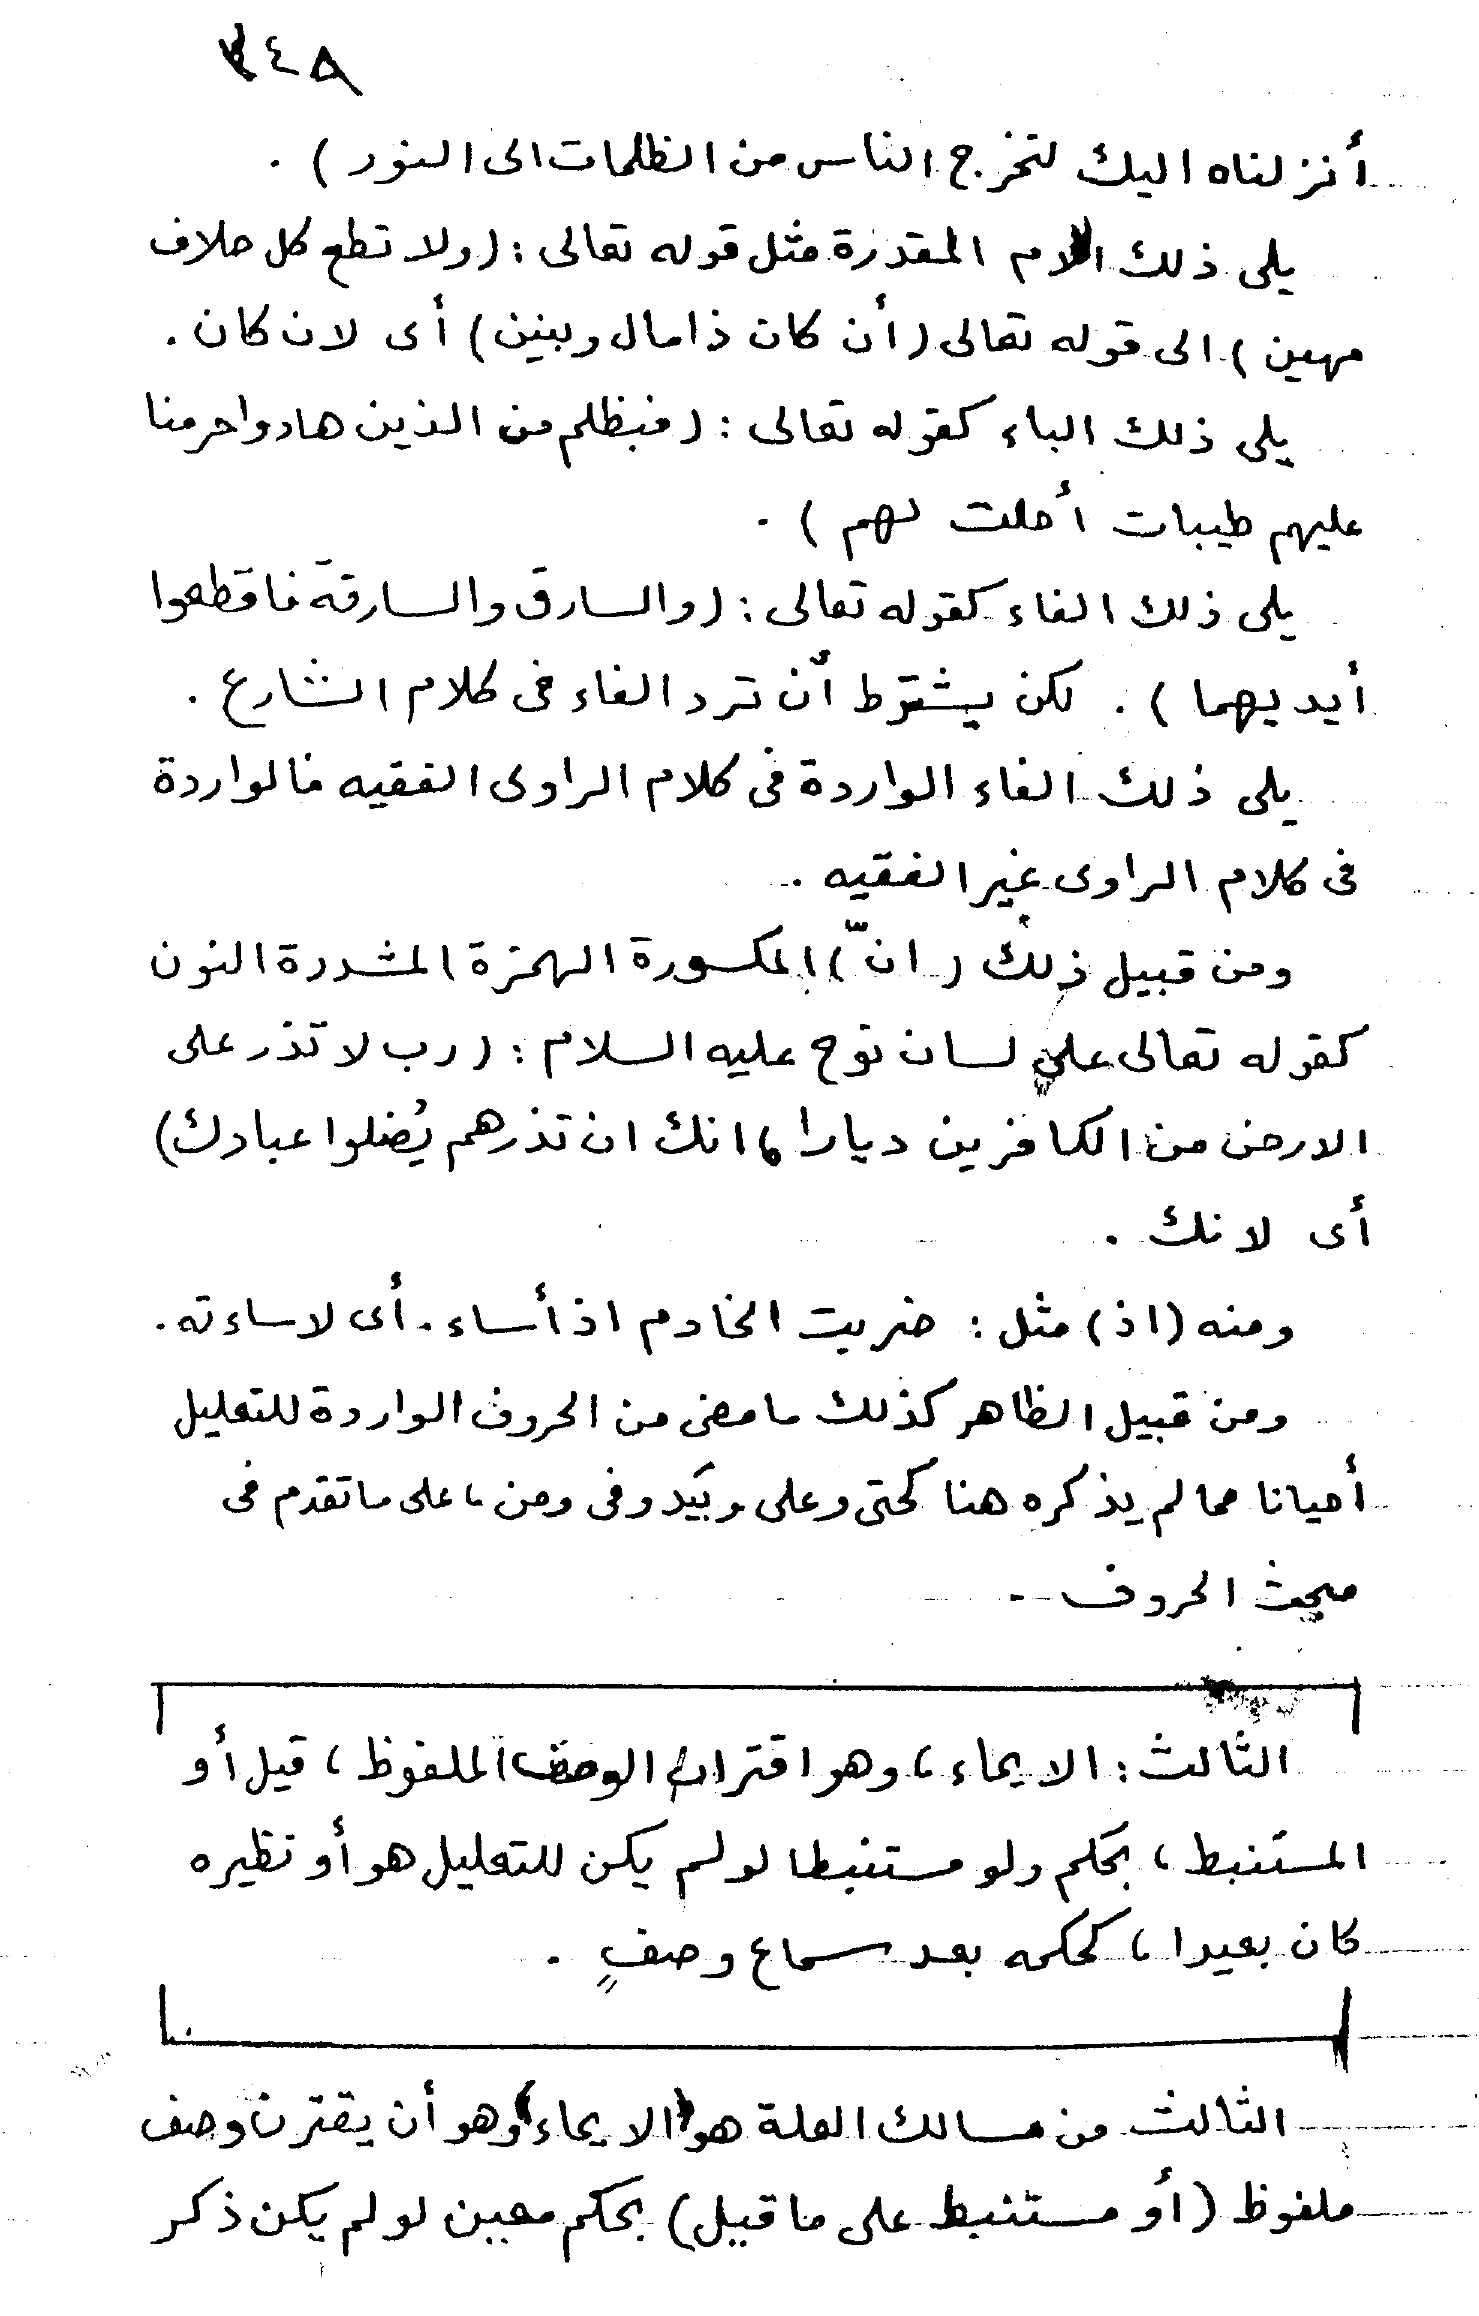 ٣٤٨
أنزلناه اليك لتخرج الناس من الظلمات الى النور ) .
يلى ذلك اللام المقدرة مثل قوله تعالى : ( ولا تطع كل حلاف
مهين ) الى قوله تعالى ( أن كان ذا مال وبنين ) أى لان كان .
يلى ذلك الباء كقوله تعالى : ( فبظلم من الذين هادوا حرمنا
عليهم طيبات أحلت لهم ) .
يلى ذلك الفاء كقوله تعالى : ( والسارق والسارقة فاقطعوا
أيديهما ) . لكن يشترط أن ترد الفاء فى كلام الشارع .
يلى ذلك الفاء الواردة فى كلام الراوى الفقيه فالواردة
فى كلام الراوى غير الفقيه .
ومن قبيل ذلك ( انّ ) المكسورة الهمزة المشددة النون
كقوله تعالى على لسان نوح عليه السلام : ( رب لا تذر على
الارض من الكافرين ديارا ، انك ان تذرهم يُضلوا عبادك )
أى لانك .
ومنه ( اذ ) مثل : ضربت الخادم اذ أساء . أى لاساءته .
ومن قبيل الظاهر كذلك ما مضى من الحروف الواردة للتعليل
أحيانا مما لم يذكره هنا كحتى وعلى وبيد وفى ومن ، على ما تقدم فى
مبحث الحروف .
الثالث : الايماء ، وهو اقتران الوصف الملفوظ ، قيل أو
المستنبط ، بحكم ولو مستنبطا لو لم يكن للتعليل هو أو نظيره
كان بعيدا ، كحكمه بعد سماع وصفٍ .
الثالث من مسالك العلة هو ( الايماء ) وهو أن يقترن وصف
ملفوظ ( أو مستنبط على ما قيل ) بحكم معين لو لم يكن ذكر